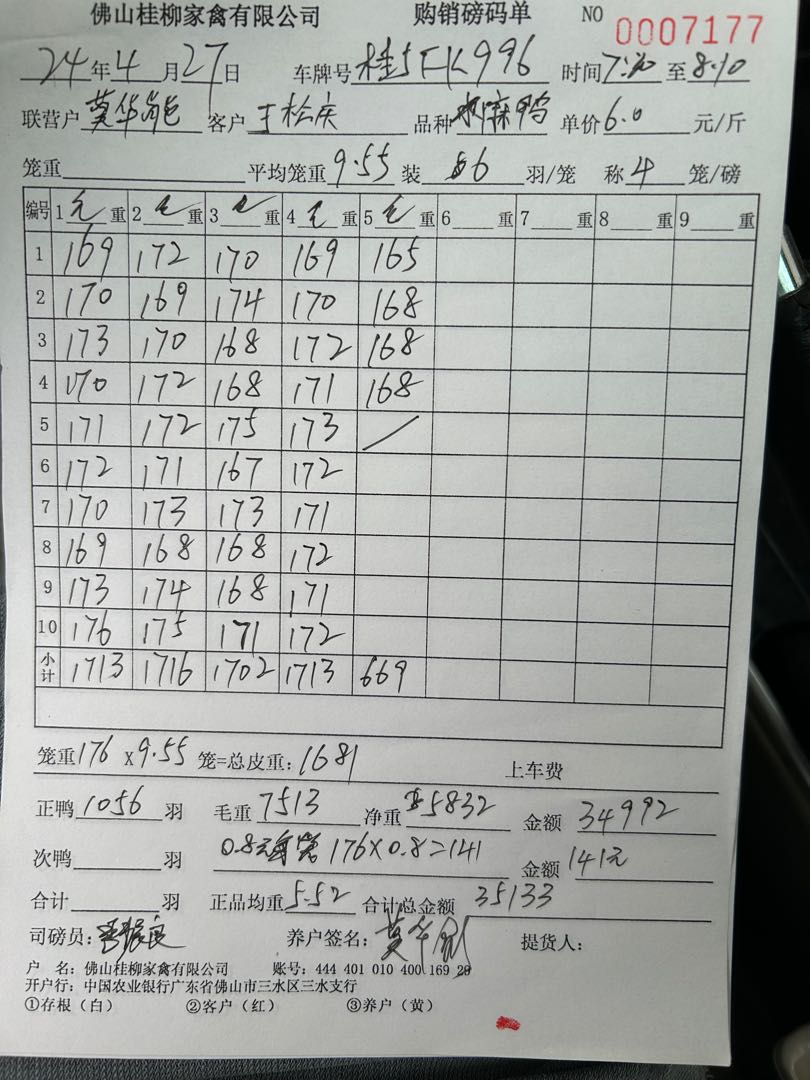 佛山桂柳家禽有限公司 购销磅码单 NO 0007177
24年4月27日 车牌号 桂 996 时间 至8:10
联营户 莫华 客户 王松庆 品种 麻鸭 单价6.0元/斤
笼重 平均笼重9.55装6羽/笼 称4笼/磅
编号 1毛重 2毛重 3毛重 4毛重 5毛重 6 重 7 重 8 重 9 重
1 169 172 170 169 165
2 170 169 174 170 168
3 173 170 168 172 168
4 170 172 168 171 168
5 171 172 175 173 /
6 172 171 167 172
7 170 173 173 171
8 169 168 168 172
9 173 174 168 171
10 176 175 171 172
小计 1713 1716 1702 1713 669
笼重176 x9.55笼=总皮重:1681 上车费
正鸭1056羽 毛重7513 净重5832 金额34992
次鸭 羽 0.8元 176×0.8=141 金额141元
合计 羽 正品均重5.52 合计总金额35133
司磅员: 养户签名:莫华 提货人:
户 名:佛山桂柳家禽有限公司 账号:444 401 010 400 169 29
开户行:中国农业银行广东省佛山市三水区三水支行
①存根(白) ②客户(红) ③养户(黄)